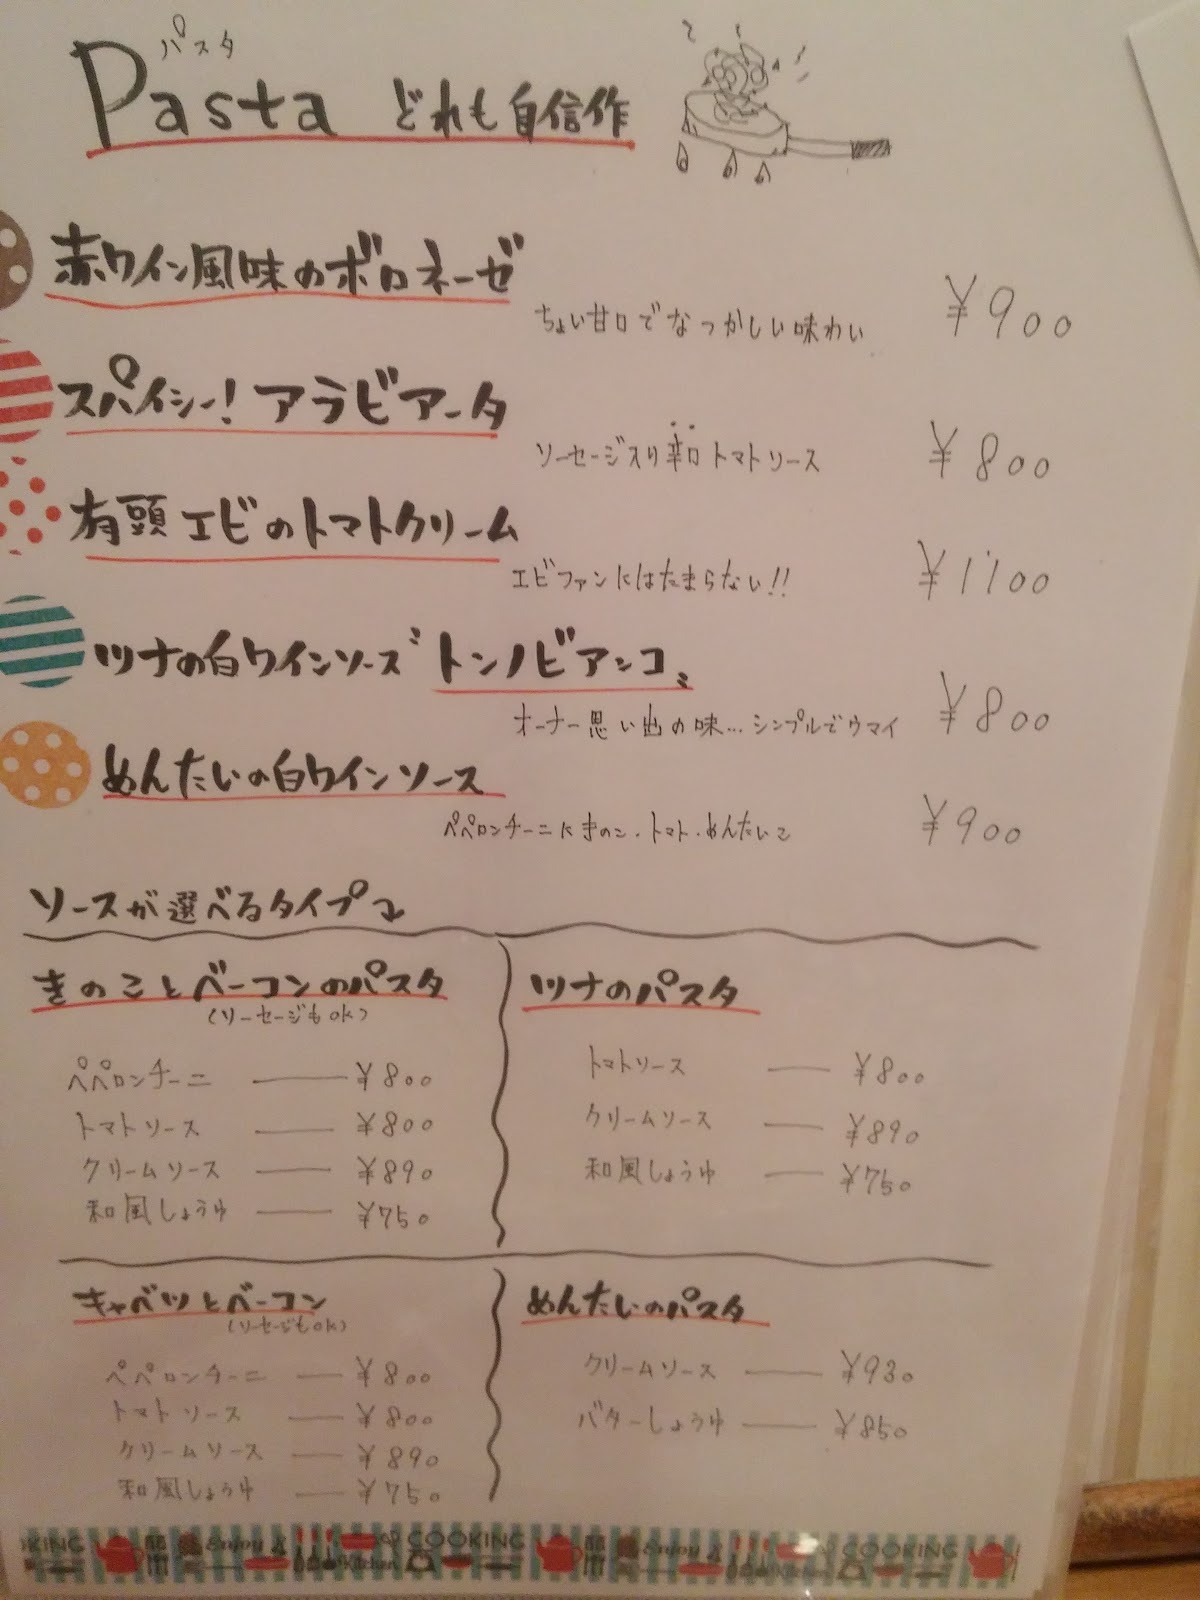 パスタ
Pasta どれも自信作
赤ワイン風味のボロネーゼ
ちょい甘口でなつかしい味わい ¥900
スパイシー!アラビアータ
ソーセージ入り辛口トマトソース ¥800
有頭エビのトマトクリーム
エビファンにはたまらない!! ¥1100
ツナの白ワインソース〝トンノビアンコ〟
オーナー思い出の味…シンプルでウマイ ¥800
めんたいの白ワインソース
ペペロンチーニにきのこ・トマト・めんたいこ ¥900
ソースが選べるタイプ
きのことベーコンのパスタ
(ソーセージもOK)
ペペロンチーニ ¥800
トマトソース ¥800
クリームソース ¥890
和風しょうゆ ¥750
ツナのパスタ
トマトソース ¥800
クリームソース ¥890
和風しょうゆ ¥750
キャベツとベーコン
(ソーセージもOK)
ペペロンチーニ ¥800
トマトソース ¥800
クリームソース ¥890
和風しょうゆ ¥750
めんたいのパスタ
クリームソース ¥930
バターしょうゆ ¥850
KING Enjoy Kitchen COOKING Enjoy Kitchen COOKING